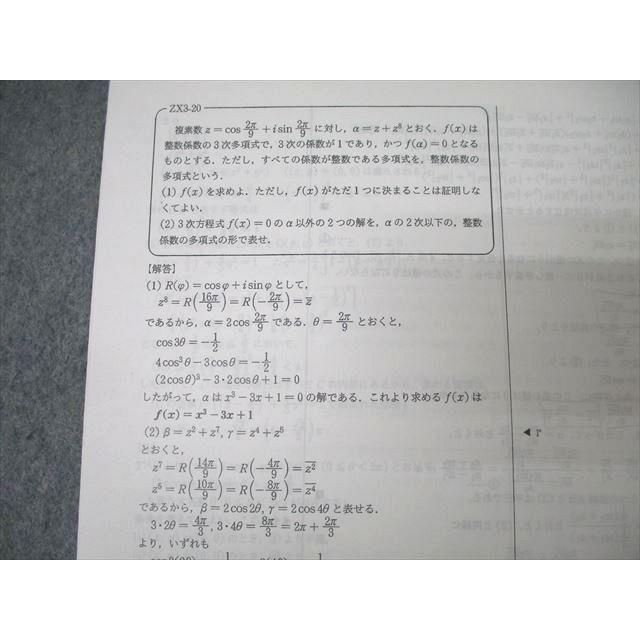 ZX3-20
複素数 z=cos 2π/9 + i sin 2π/9 に対し，α=z+z⁸ とおく．f(x) は
整数係数の3次多項式で，3次の係数が1であり，かつ f(α)=0 となる
ものとする．ただし，すべての係数が整数である多項式を，整数係数の
多項式という．
(1) f(x) を求めよ．ただし，f(x) がただ1つに決まることは証明しな
くてよい．
(2) 3次方程式 f(x)=0 の α 以外の2つの解を，α の2次以下の，整数
係数の多項式の形で表せ．
【解答】
(1) R(φ)=cosφ+i sinφ として，
z⁸=R(16π/9)=R(−2π/9)=z̄
であるから，α=2cos 2π/9 である．θ=2π/9 とおくと，
cos3θ=−1/2
4cos³θ−3cosθ=−1/2
(2cosθ)³−3・2cosθ+1=0
したがって，α は x³−3x+1=0 の解である．これより求める f(x) は
f(x)=x³−3x+1
(2) β=z²+z⁷, γ=z⁴+z⁵
◀ 1°
とおくと，
z⁷=R(14π/9)=R(−4π/9)=z̄²
z⁵=R(10π/9)=R(−8π/9)=z̄⁴
であるから，β=2cos2θ, γ=2cos4θ と表せる．
3・2θ=4π/3, 3・4θ=8π/3=2π+2π/3
より，いずれも